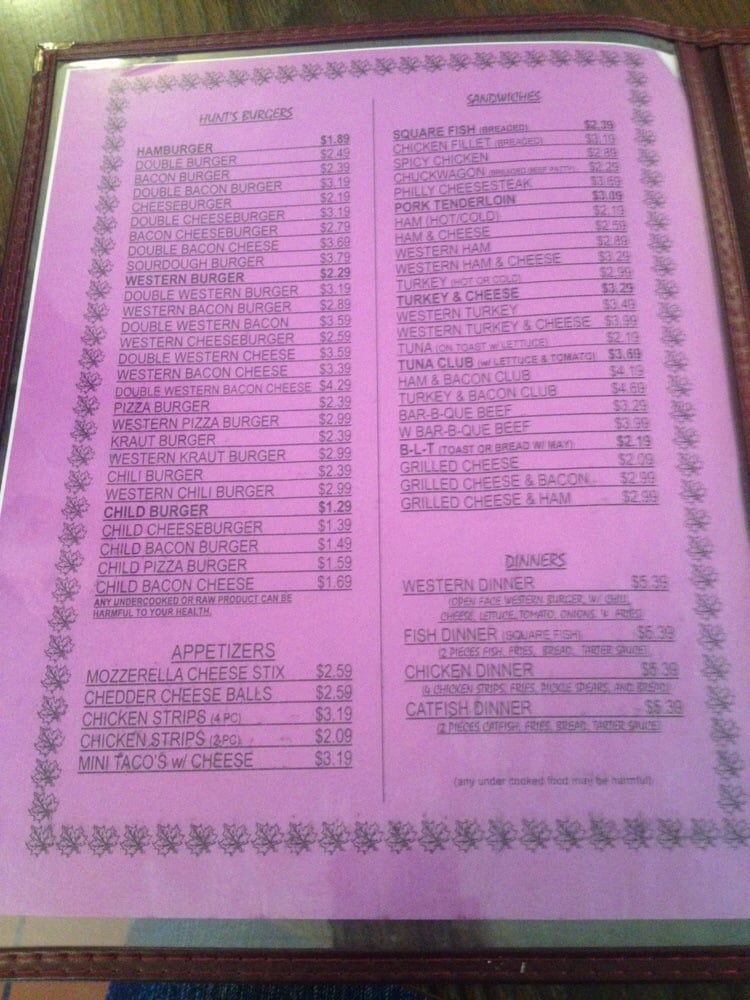 HUNT'S BURGERS
HAMBURGER $1.89
DOUBLE BURGER $2.49
BACON BURGER $2.39
DOUBLE BACON BURGER $3.19
CHEESEBURGER $2.19
DOUBLE CHEESEBURGER $3.19
BACON CHEESEBURGER $2.79
DOUBLE BACON CHEESE $3.69
SOURDOUGH BURGER $3.79
WESTERN BURGER $2.29
DOUBLE WESTERN BURGER $3.19
WESTERN BACON BURGER $2.89
DOUBLE WESTERN BACON $3.59
WESTERN CHEESEBURGER $2.59
DOUBLE WESTERN CHEESE $3.59
WESTERN BACON CHEESE $3.39
DOUBLE WESTERN BACON CHEESE $4.29
PIZZA BURGER $2.39
WESTERN PIZZA BURGER $2.99
KRAUT BURGER $2.39
WESTERN KRAUT BURGER $2.99
CHILI BURGER $2.39
WESTERN CHILI BURGER $2.99
CHILD BURGER $1.29
CHILD CHEESEBURGER $1.39
CHILD BACON BURGER $1.49
CHILD PIZZA BURGER $1.59
CHILD BACON CHEESE $1.69
ANY UNDERCOOKED OR RAW PRODUCT CAN BE
HARMFUL TO YOUR HEALTH.
APPETIZERS
MOZZERELLA CHEESE STIX $2.59
CHEDDER CHEESE BALLS $2.59
CHICKEN STRIPS (4-PC) $3.19
CHICKEN STRIPS (2-PC) $2.09
MINI TACO'S w/ CHEESE $3.19
SANDWICHES
SQUARE FISH (BREADED) $2.39
CHICKEN FILLET (BREADED) $3.19
SPICY CHICKEN $2.89
CHUCKWAGON (BREADED BEEF PATTY) $2.29
PHILLY CHEESESTEAK $3.69
PORK TENDERLOIN $3.09
HAM (HOT/COLD) $2.19
HAM & CHEESE $2.59
WESTERN HAM $2.89
WESTERN HAM & CHEESE $3.29
TURKEY (HOT OR COLD) $2.99
TURKEY & CHEESE $3.29
WESTERN TURKEY $3.49
WESTERN TURKEY & CHEESE $3.99
TUNA (ON TOAST W/ LETTUCE) $2.19
TUNA CLUB (w/ LETTUCE & TOMATO) $3.69
HAM & BACON CLUB $4.19
TURKEY & BACON CLUB $4.69
BAR-B-QUE BEEF $3.29
W BAR-B-QUE BEEF $3.99
B-L-T (TOAST OR BREAD W/ MAY) $2.19
GRILLED CHEESE $2.09
GRILLED CHEESE & BACON $2.99
GRILLED CHEESE & HAM $2.99
DINNERS
WESTERN DINNER $5.39
(OPEN FACE WESTERN BURGER, W/ CHILI,
CHEESE, LETTUCE, TOMATO, ONIONS, & FRIES)
FISH DINNER (SQUARE FISH) $5.39
(2 PIECES FISH, FRIES, BREAD, TARTER SAUCE)
CHICKEN DINNER $5.39
(4 CHICKEN STRIPS, FRIES, PICKLE SPEARS, AND BREAD)
CATFISH DINNER $5.39
(2 PIECES CATFISH, FRIES, BREAD, TARTER SAUCE)
(any under cooked food may be harmful)